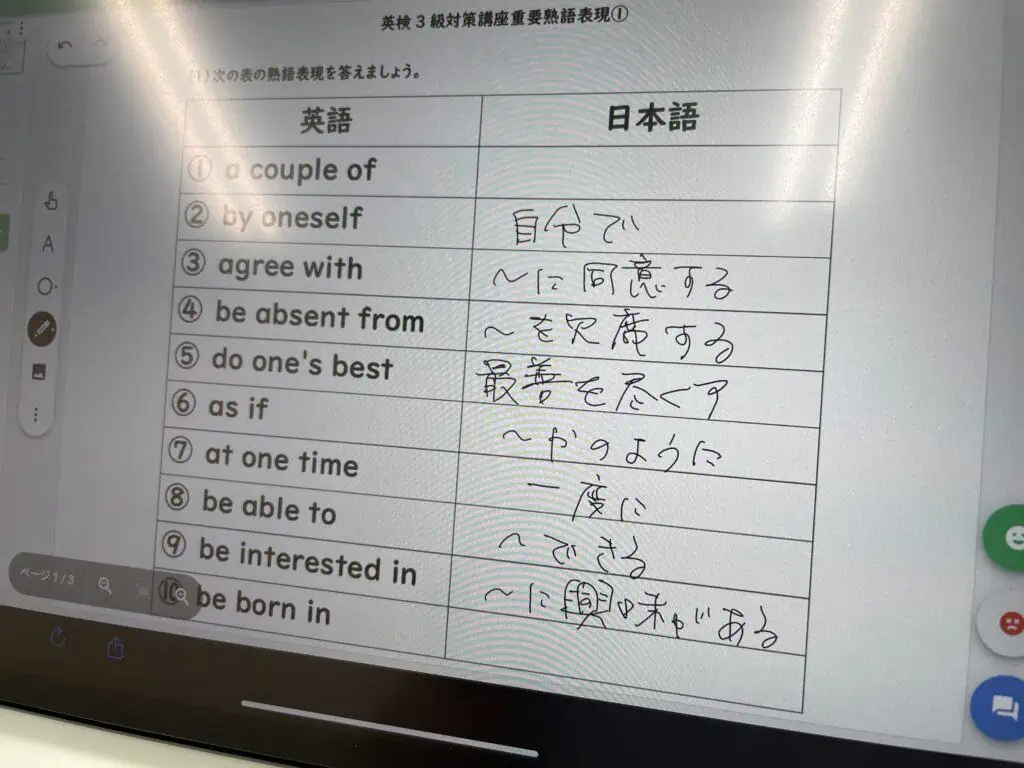 英検3級対策講座重要熟語表現①
(1)次の表の熟語表現を答えましょう。
英語 日本語
① a couple of
② by oneself 自分で
③ agree with ～に同意する
④ be absent from ～を欠席する
⑤ do one's best 最善を尽くす
⑥ as if ～かのように
⑦ at one time 一度に
⑧ be able to ～できる
⑨ be interested in ～に興味がある
⑩ be born in
ページ1/3
A